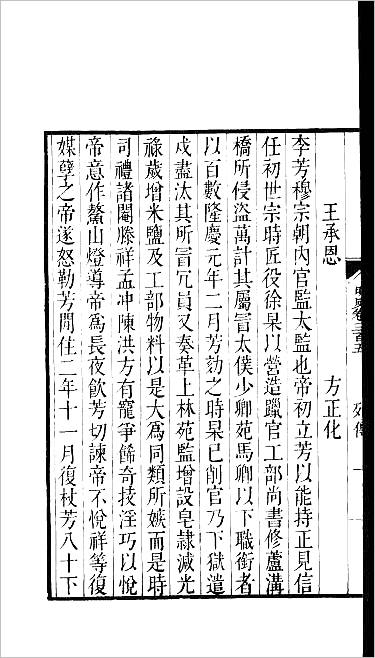 明史卷三百五 列傳 一
王承恩 方正化
李芳穆宗朝內官監太監也帝初立芳以能持正見信
任初世宗時匠役徐杲以營造躐官工部尚書修蘆溝
橋所侵盜萬計其屬冒太僕少卿苑馬卿以下職銜者
以百數隆慶元年二月芳劾之時杲已削官乃下獄遣
戍盡汰其所冒冗員又奏革上林苑監增設皂隸減光
祿歲增米鹽及工部物料以是大爲同類所嫉而是時
司禮諸閹滕祥孟冲陳洪方有寵爭飾奇技淫巧以悅
帝意作鰲山燈導帝爲長夜飲芳切諫帝不悅祥等復
媒孽之帝遂怒勒芳閒住二年十一月復杖芳八十下